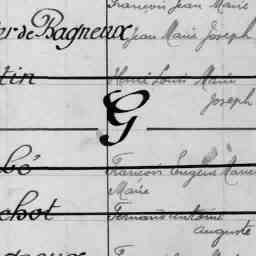 François Jean Marie
er de Bagneux Jean Marie Joseph
tin Henri Louis Marie
Joseph
G
bé François Eugène Marie
Marie
chot Fernand Antoine
Auguste